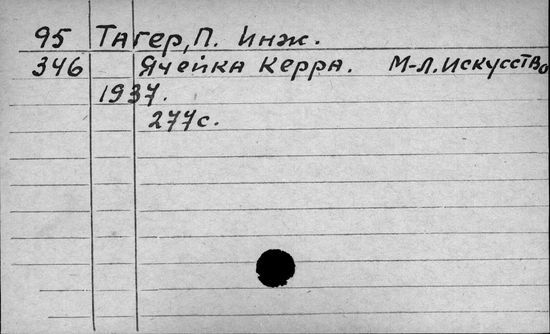 95 Тагер, П. Инж.
346 Ячейка Керра. М-Л. Искусство
1937.
277с.